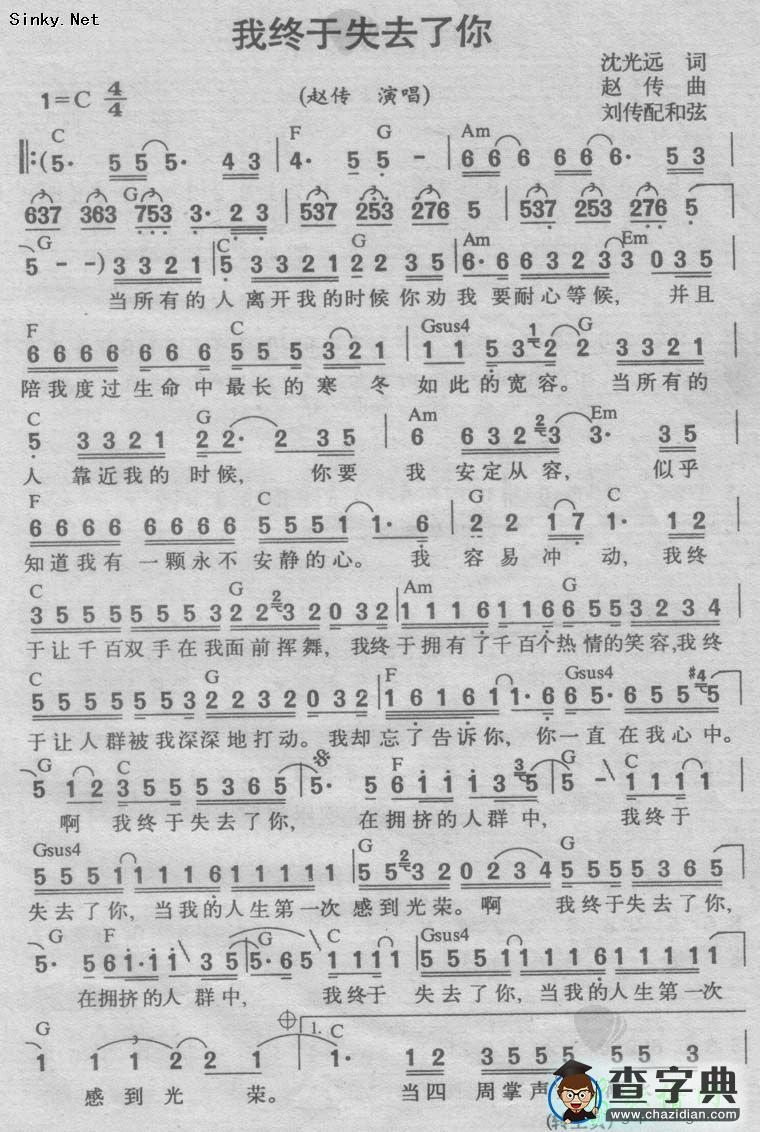 Sinky.Net
我终于失去了你
沈光远 词
1=C 4/4 (赵传 演唱) 赵传 曲
刘传配和弦
C F G Am
5· 5 5 5· 4 3 4· 5 5· - 6 6 6 6 6 6· 5 3
G
637 363 753 3· 2 3 537 253 276 5 537 253 276 5
G C G Am Em
5 - -) 3 3 2 1 5 3 3 2 1 2 2 3 5 6· 6 6 3 2 3 3 0 3 5
当所有的人 离开我的时候你劝我 要耐心等候, 并且
F C Gsus4 G
6 6 6 6 6 6 6 5 5 5 3 2 1 1 1 5 3 2 2 3 3 2 1
陪我度过生命中最长的寒 冬 如此的宽容。 当所有的
C G Am Em
5 3 3 2 1 2 2· 2 3 5 6 6 3 2 3 3· 3 5
人 靠近我的 时候, 你要 我 安定从容, 似乎
F C G C
6 6 6 6 6 6 6 6 5 5 5 1 1· 6 2 2 1 7 1· 1 2
知道我有 一颗永不 安静的心。 我 容易 冲 动, 我终
C G Am G
3 5 5 5 5 5 5 3 2 2 3 2 0 3 2 1 1 1 6 1 1 6 6 5 5 3 2 3 4
于让千百双手在我面前挥舞, 我终于拥有了千百个热情的笑容,我终
C G F Gsus4
5 5 5 5 5 5 3 2 2 3 2 0 3 2 1 6 1 6 1 1· 6 6 5· 5 5 5 #4 5
于让人群被我深深地打动。我却忘了告诉你, 你一直在我心中。
G C F G C
5 1 2 3 5 5 5 5 3 6 5 5· 5 6 1 1 1 3 5 5 - 1 1 1 1
啊 我终于失去了你, 在拥挤的人群中, 我终于
Gsus4 G G
5 5 5 1 1 1 1 6 1 1 1 1 1 5 5 3 2 0 2 3 4 5 5 5 5 3 6 5
失去了你, 当我的人生第一次 感到光荣。啊 我终于失去了你,
G F G C Gsus4
5· 5 6 1· 1 1 3 5 5· 6 5 1 1 1 1 5 5 5 1 1 1 1 6 1 1 1 1 1
在拥挤的人 群中, 我终于 失去了你, 当我的人生第一次
G 1. C
1 1 1 2 2 1 1· 1 2 3 5 5 5
感到光 荣。 当四 周掌声
查字典
www.chazidian.com